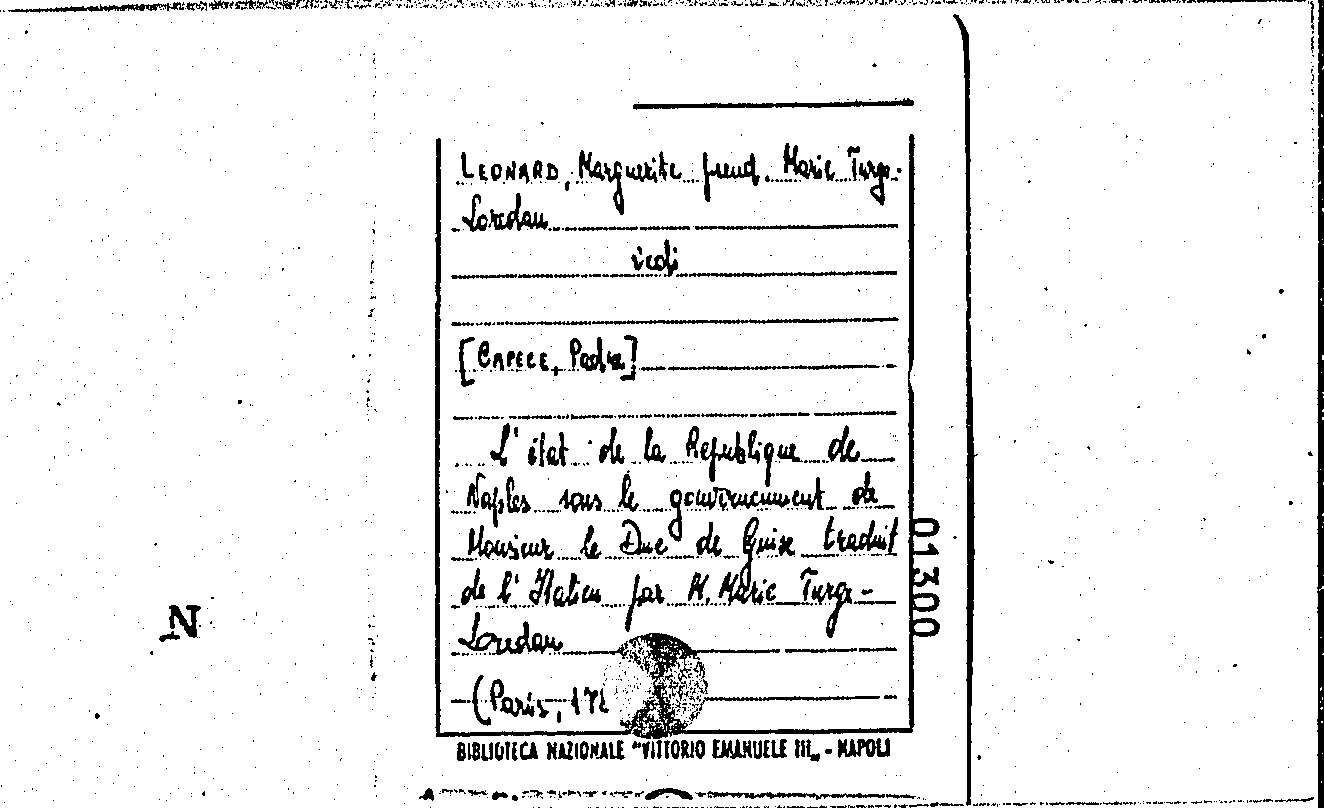 LEONARD, Marguerite pseud. Marie Turge-
Loredan
vedi
[CAPECE, Pedra]
L'état de la Republique de
Naples sous le gouvernement de
Monsieur le Duc de Guise traduit
de l'Italien par M. Marie Turge-
Loredan
(Paris, 17
BIBLIOTECA NAZIONALE "VITTORIO EMANUELE III„ - NAPOLI
01300
N